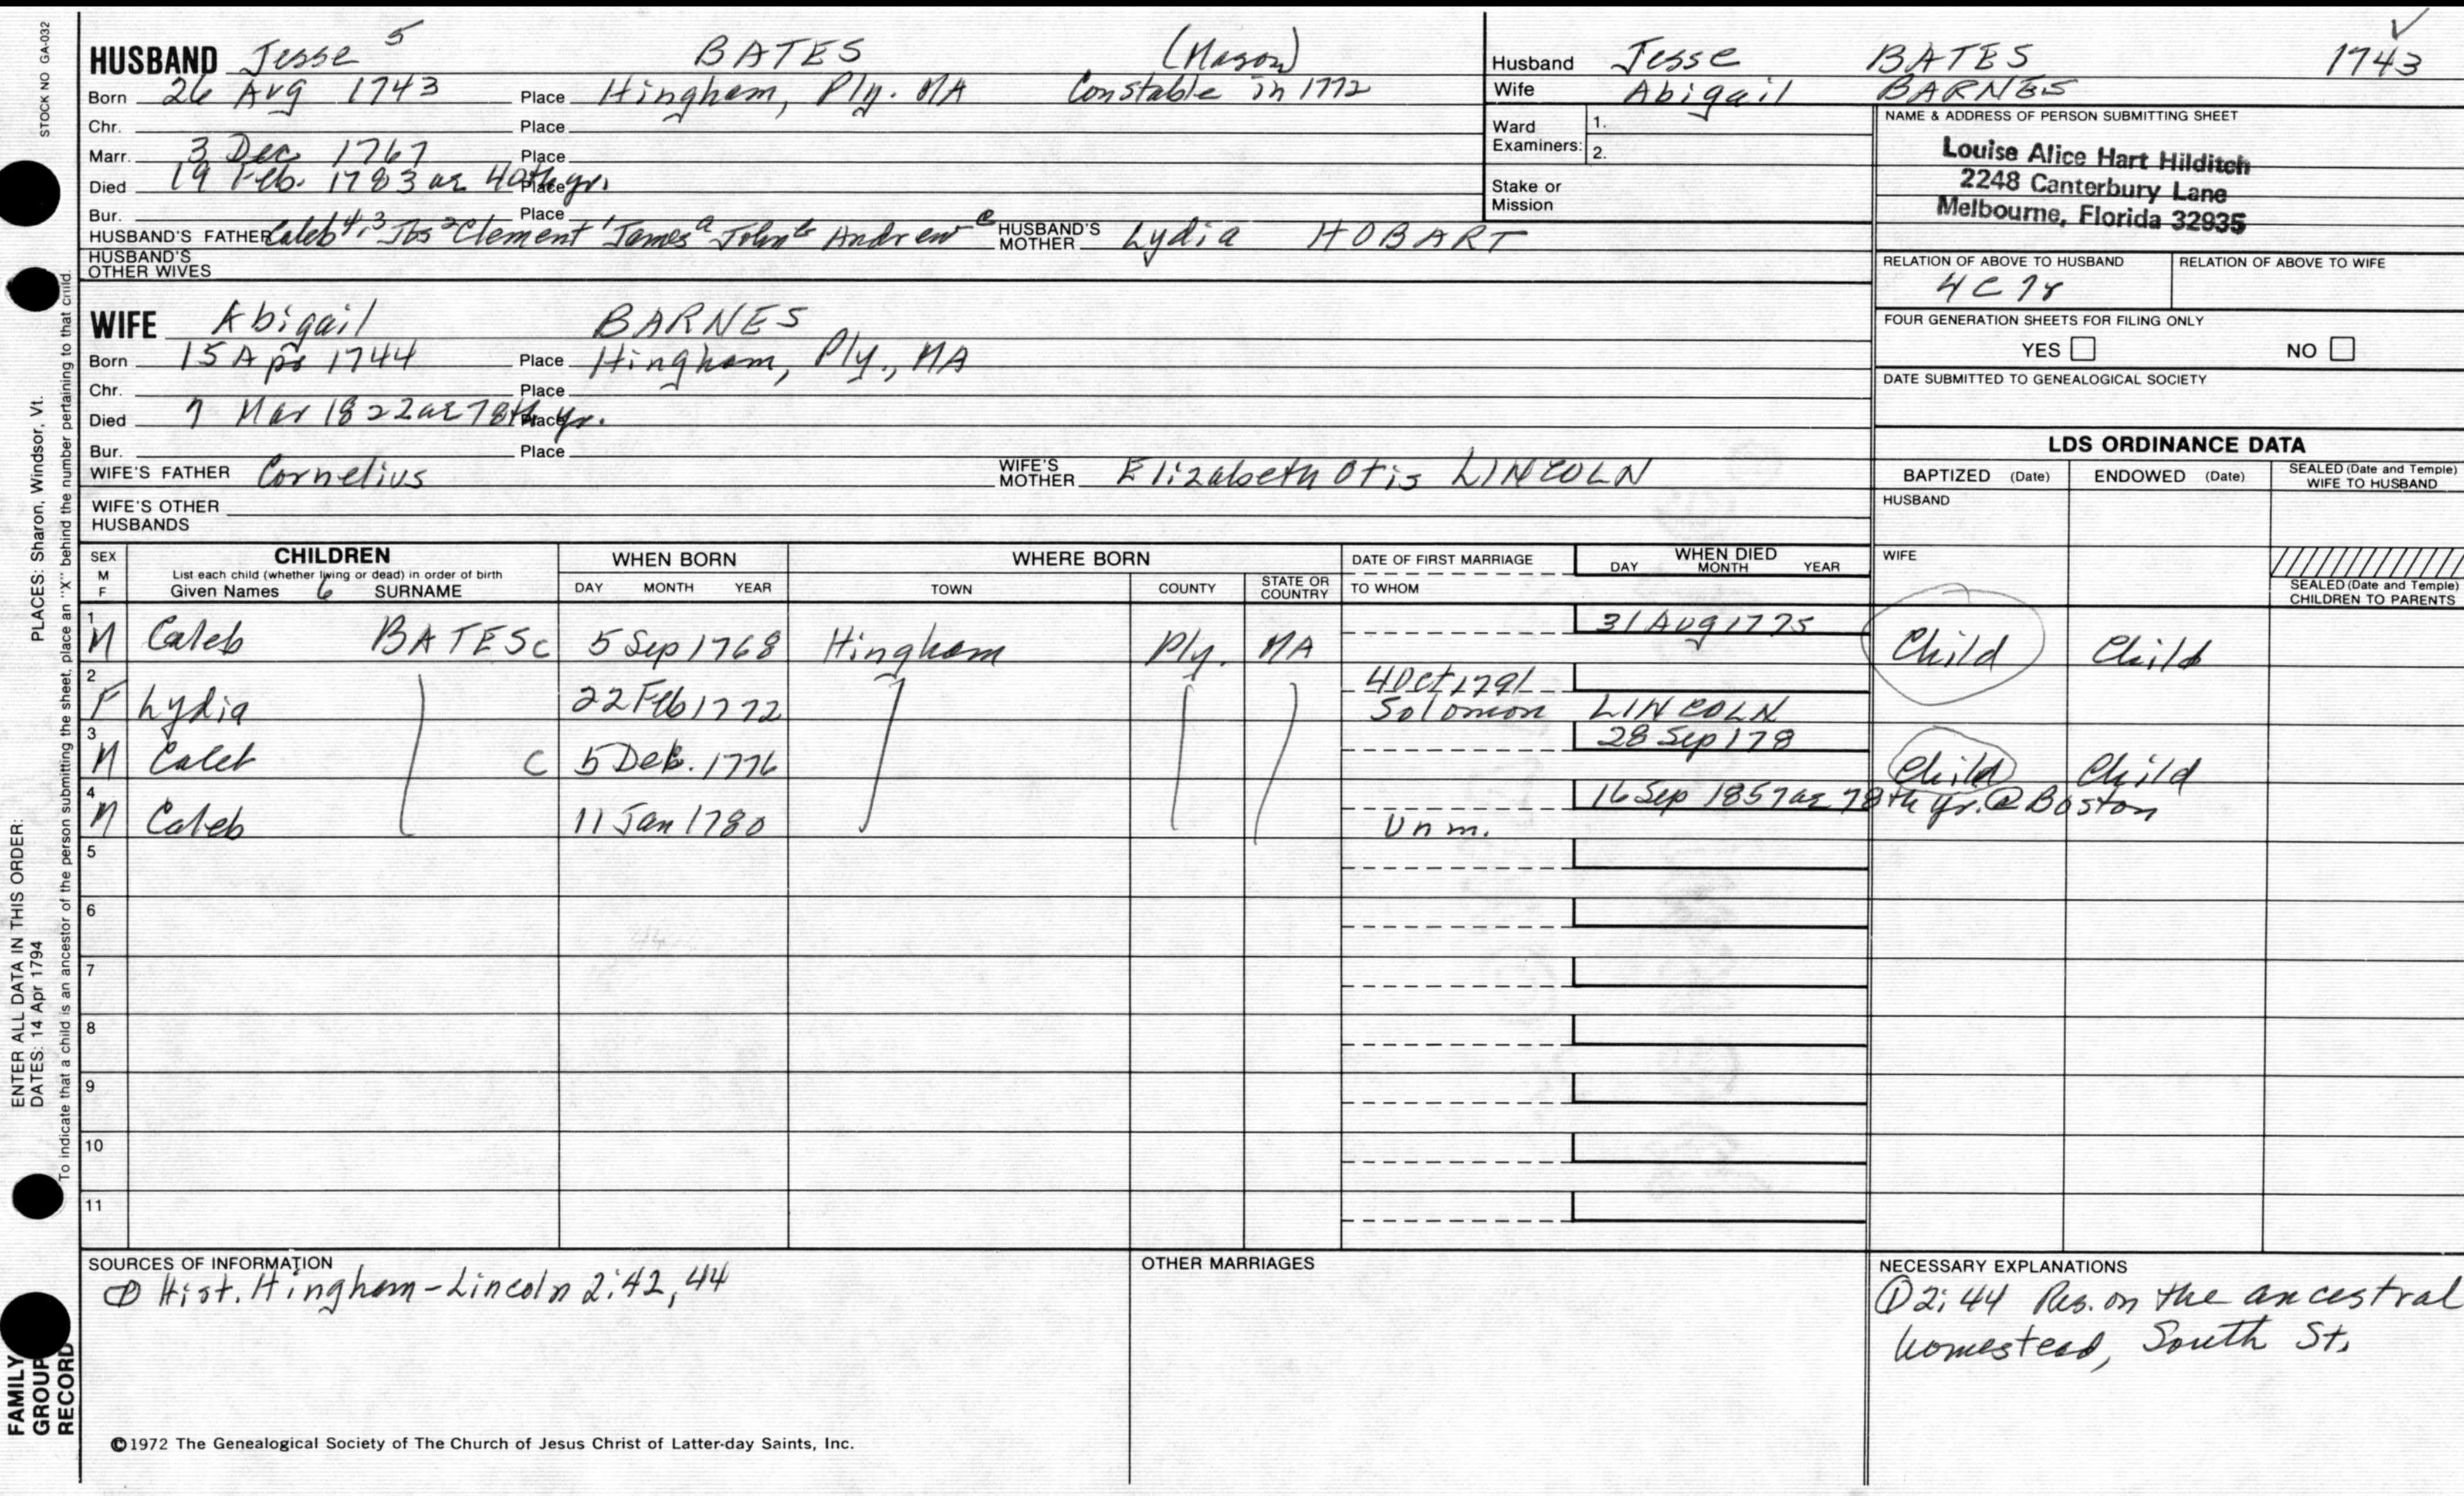 STOCK NO GA-032
PLACES: Sharon, Windsor, Vt.
ENTER ALL DATA IN THIS ORDER:
DATES: 14 Apr 1794
To indicate that a child is an ancestor of the person submitting the sheet, place an "X" behind the number pertaining to that child.
FAMILY GROUP RECORD
HUSBAND Jesse 5 BATES (Mason)
Born 26 Aug 1743 Place Hingham, Ply. MA Constable in 1772
Chr. Place
Marr. 3 Dec 1767 Place
Died 19 Feb. 1783 ae 40th yr. Place
Bur. Place
HUSBAND'S FATHER Caleb 4, 3 Jos 2 Clement 1 James a John b Andrew c HUSBAND'S MOTHER Lydia HOBART
HUSBAND'S OTHER WIVES
WIFE Abigail BARNES
Born 15 Apr 1744 Place Hingham, Ply., MA
Chr. Place
Died 7 Mar 1822 ae 78th yr. Place
Bur. Place
WIFE'S FATHER Cornelius WIFE'S MOTHER Elizabeth Otis LINCOLN
WIFE'S OTHER HUSBANDS
Husband Jesse BATES 1743 ✓
Wife Abigail BARNES
Ward Examiners: 1.
2.
Stake or Mission
NAME & ADDRESS OF PERSON SUBMITTING SHEET
Louise Alice Hart Hilditch
2248 Canterbury Lane
Melbourne, Florida 32935
RELATION OF ABOVE TO HUSBAND RELATION OF ABOVE TO WIFE
4C7r
FOUR GENERATION SHEETS FOR FILING ONLY
YES NO
DATE SUBMITTED TO GENEALOGICAL SOCIETY
LDS ORDINANCE DATA
BAPTIZED (Date) ENDOWED (Date) SEALED (Date and Temple) WIFE TO HUSBAND
HUSBAND
WIFE
SEALED (Date and Temple) CHILDREN TO PARENTS
SEX M F CHILDREN WHEN BORN WHERE BORN DATE OF FIRST MARRIAGE WHEN DIED
List each child (whether living or dead) in order of birth
Given Names 6 SURNAME DAY MONTH YEAR TOWN COUNTY STATE OR COUNTRY TO WHOM DAY MONTH YEAR
1 M Caleb BATES c 5 Sep 1768 Hingham Ply. MA 31 Aug 1775 Child Child
2 F Lydia 22 Feb 1772 4 Oct 1791 Solomon LINCOLN
3 M Caleb c 5 Dec. 1776 28 Sep 178 Child Child
4 M Caleb 11 Jan 1780 Unm. 16 Sep 1857 ae 78th yr. @ Boston
5
6
7
8
9
10
11
SOURCES OF INFORMATION
① Hist. Hingham - Lincoln 2:42, 44
OTHER MARRIAGES
NECESSARY EXPLANATIONS
① 2:44 Res. on the ancestral
homestead, South St.
©1972 The Genealogical Society of The Church of Jesus Christ of Latter-day Saints, Inc.